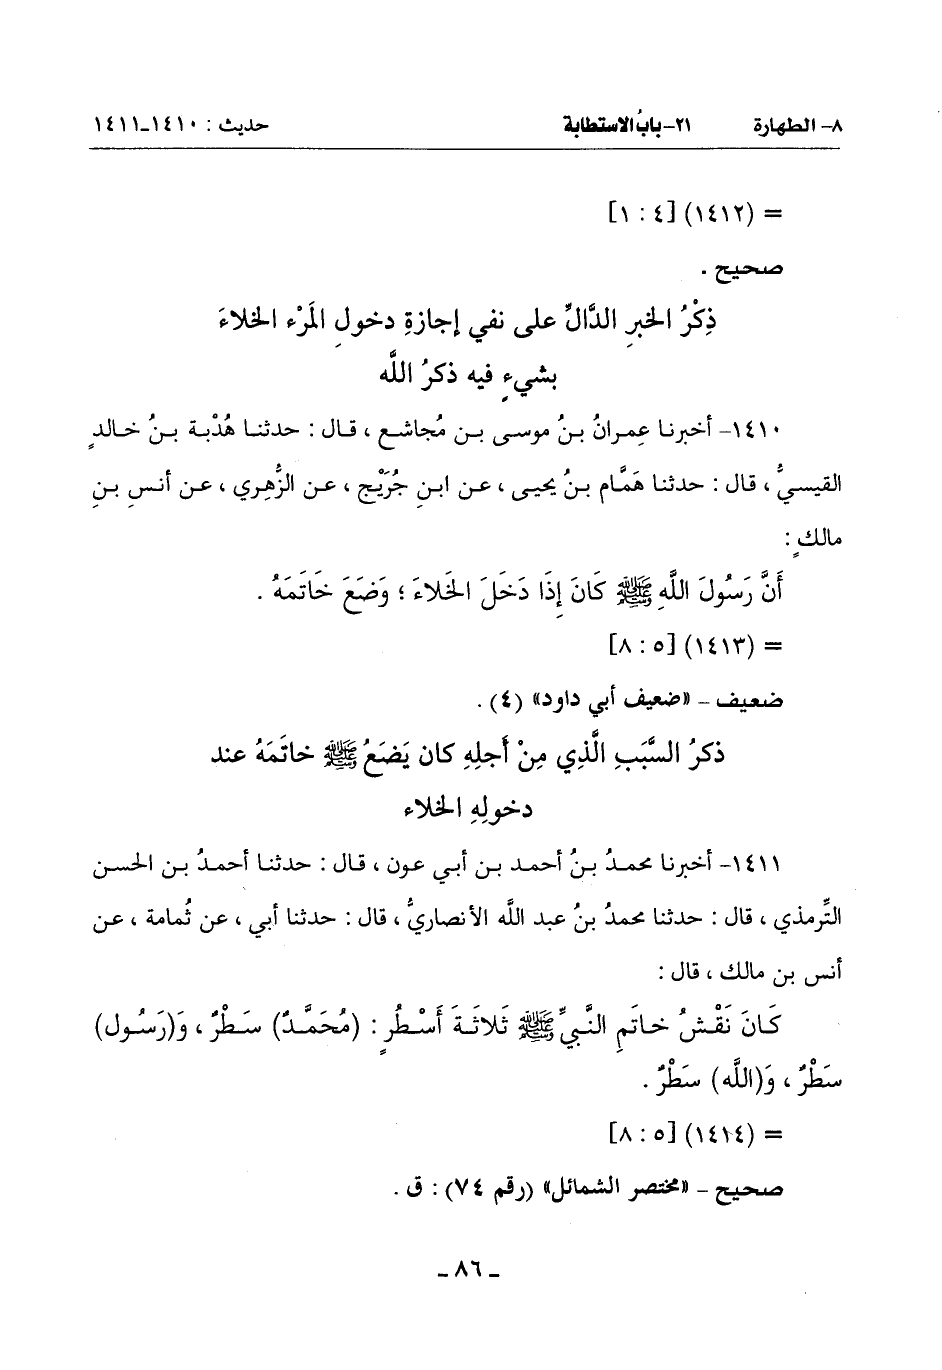 ٨- الطهارة ٢١-بابُ الاستطابة حديث : ١٤١٠-١٤١١
= (١٤١٢) [٤ : ١]
صحيح .
ذِكْرُ الخبرِ الدَّالِّ على نفي إجازةِ دخولِ المَرْءِ الخلاءَ
بشيءٍ فيه ذكرُ اللَّه
١٤١٠- أخبرنا عِمرانُ بنُ موسى بن مُجاشع ، قال : حدثنا هُدْبة بنُ خالدٍ
القيسيُّ ، قال : حدثنا هَمَّام بنُ يحيى ، عن ابنِ جُرَيْج ، عن الزُّهري ، عن أنسِ بنِ
مالكٍ :
أَنَّ رَسُولَ اللَّهِ ﷺ كَانَ إِذَا دَخَلَ الخَلاءَ ؛ وَضَعَ خَاتَمَهُ .
= (١٤١٣) [٥ : ٨]
ضعيف - «ضعيف أبي داود» (٤) .
ذكرُ السَّبَبِ الَّذِي مِنْ أَجلِهِ كان يَضَعُ ﷺ خاتَمَهُ عند
دخولِهِ الخلاء
١٤١١- أخبرنا محمدُ بنُ أحمد بن أبي عون ، قال : حدثنا أحمدُ بن الحسن
التِّرمذي ، قال : حدثنا محمدُ بنُ عبد اللَّه الأنصاريُّ ، قال : حدثنا أبي ، عن ثُمامة ، عن
أنس بن مالك ، قال :
كَانَ نَقْشُ خاتَمِ النَّبيِّ ﷺ ثَلاثَةَ أَسْطُرٍ : (مُحَمَّدٌ) سَطْرٌ ، وَ(رَسُول)
سَطْرٌ ، وَ(اللَّه) سَطْرٌ .
= (١٤١٤) [٥ : ٨]
صحيح - «مختصر الشمائل» (رقم ٧٤) : ق .
- ٨٦ -